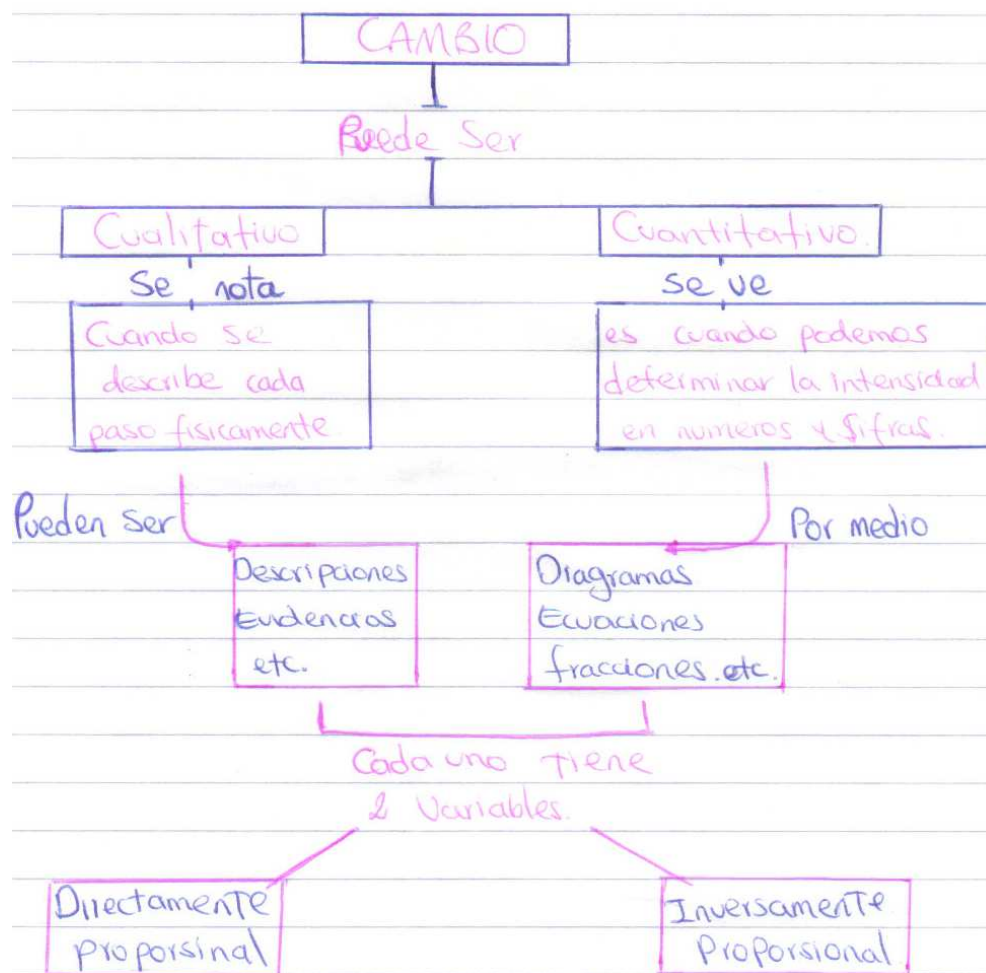 CAMBIO
Puede Ser
Cualitativo
Cuantitativo.
Se nota
se ve
Cuando se
describe cada
paso fisicamente.
es cuando podemos
determinar la intensidad
en numeros y sifras.
Pueden Ser
Por medio
Descripciones
Evidencias
etc.
Diagramas
Ecuaciones
fracciones. etc.
Cada uno tiene
2 Variables.
Directamente
proporsinal
Inversamente
Proporsional